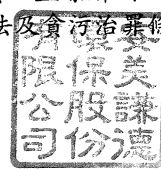 法及貪污治罪條
美謙德
環保股份
有限公司